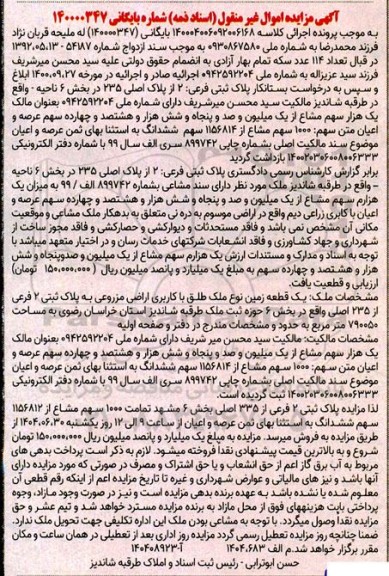 آگهی مزایده اموال غیر منقول (اسناد ذمه) شماره بایگانی ۱۴۰۰۰۰۳۴۷
به موجب پرونده اجرائی کلاسه ۱۴۰۰۰۴۰۰۶۰۹۲۰۰۶۱۶۸ بایگانی (۱۴۰۰۰۰۳۴۷) له ملیحه قربان نژاد
فرزند محمدرضا به شماره ملی ۰۹۳۰۸۶۷۵۸۰ به موجب سند ازدواج شماره ۵۴۸۷ - ۱۳۹۲.۰۵.۱۳
در قبال تعداد ۱۱۴ عدد سکه تمام بهار آزادی به انضمام حقوق دولتی علیه سید محسن میرشریف
فرزند سید عزیزاله به شماره ملی ۰۹۴۲۵۹۲۲۰۴ اجرائیه صادر و اجرائیه در مورخه ۱۴۰۰.۰۹.۲۷ ابلاغ
و سپس به درخواست بستانکار پلاک ثبتی فرعی: ۲ از پلاک اصلی ۲۳۵ در بخش ۶ ناحیه - واقع
در طرقبه شاندیز مالکیت سید محسن میرشریف دارای شماره ملی ۰۹۴۲۵۹۲۲۰۴ بعنوان مالک
یک هزار سهم مشاع از یک میلیون و صد و پنجاه و شش هزار و هشتصد و چهارده سهم عرصه و
اعیان متن سهم: ۱۰۰۰ سهم مشاع از ۱۱۵۶۸۱۴ سهم ششدانگ به استثنا بهای ثمن عرصه و اعیان
موضوع سند مالکیت اصلی بشماره چاپی ۸۹۹۷۴۲ سری الف سال ۹۹ با شماره دفتر الکترونیکی
۱۴۰۰۲۰۳۰۶۰۰۸۰۰۶۳۳۳ بازداشت گردید
برابر گزارش کارشناس رسمی دادگستری پلاک ثبتی فرعی: ۲ از پلاک اصلی ۲۳۵ در بخش ۶ ناحیه
- واقع در طرقبه شاندیز ملک مورد نظر دارای سند مشاعی بشماره ۸۹۹۷۴۲ الف / ۹۹ به میزان یک
هزارم سهم مشاع از یک میلیون و صد و پنجاه و شش هزار و هشتصد و چهارده سهم عرصه و
اعیان با کاربری زراعی دیم واقع در اراضی موسوم به دره نی متعلق به بدهکار ملک مشاعی و موقعیت
مکانی آن مشخص نمی باشد و فاقد مستحدثات و دیوارکشی و حصارکشی و فاقد مجوز ساخت از
شهرداری و جهاد کشاورزی و فاقد انشعابات شرکتهای خدمات رسان و در اختیار متعهد میباشد با
توجه به اسناد و مدارک و مستندات ارزش یک هزارم سهم مشاع از یک میلیون و صدوپنجاه و شش
هزار و هشتصد و چهارده سهم به مبلغ یک میلیارد و پانصد میلیون ریال ( ۱۵۰.۰۰۰.۰۰۰ تومان)
ارزیابی و قطعیت یافت.
مشخصات ملک: یک قطعه زمین نوع ملک طلق با کاربری اراضی مزروعی به پلاک ثبتی ۲ فرعی
از ۲۳۵ اصلی واقع در بخش ۶ حوزه ثبت ملک طرقبه شاندیز استان خراسان رضوی به مساحت
۷۹۰۰۵۰ متر مربع به حدود و مشخصات مندرج در دفتر و صفحه اولیه
مشخصات مالکیت: مالکیت سید محسن میر شریف دارای شماره ملی ۰۹۴۲۵۹۲۲۰۴ بعنوان مالک
یک هزار سهم مشاع از یک میلیون و صد و پنجاه و شش هزار و هشتصد و چهارده سهم عرصه و
اعیان متن سهم: ۱۰۰۰ سهم مشاع از ۱۱۵۶۸۱۴ سهم ششدانگ به استثنای بهای ثمن عرصه و اعیان
موضوع سند مالکیت اصلی بشماره چاپی ۸۹۹۷۴۲ سری الف سال ۹۹ با شماره دفتر الکترونیکی
۱۴۰۰۲۰۳۰۶۰۰۸۰۰۶۳۳۳ ثبت گردیده است.
لذا مزایده پلاک ثبتی ۲ فرعی از ۳۳۵ اصلی بخش ۶ مشهد تمامت ۱۰۰۰ سهم مشاع از ۱۱۵۶۸۱۲
سهم ششدانگ به استثنای بهای ثمن عرصه و اعیان از ساعت ۹ الی ۱۲ روز یکشنبه ۱۴۰۴.۰۶.۳۰ از
طریق مزایده به فروش میرسد. مزایده به مبلغ یک میلیارد و پانصد میلیون ریال ۱۵۰.۰۰۰.۰۰۰ تومان
شروع و به بالاترین قیمت پیشنهادی نقدا فروخته میشود. لازم به ذکر است پرداخت بدهی های
مربوط به آب برق گاز اعم از حق انشعاب و یا حق اشتراک و مصرف در صورتی که مورد مزایده دارای
آنها باشد و نیز های مالیاتی و عوارض شهرداری و غیره تا تاریخ مزایده اعم از اینکه رقم قطعی آن
معلوم شده یا نشده باشد به عهده برنده بدهی مزایده است و نیز در صورت وجود مازاد، وجوه
پرداختی بابت هزینههای فوق از محل مازاد به برنده مزایده مسترد خواهد شد و تیم عشر و حق
مزایده نقدا وصول میگردد. با توجه به مشاعی بودن ملک این اداره تکلیفی جهت تحویل ملک ندارد.
ضمنا چنانچه روز مزایده تعطیل رسمی گردد مزایده روز اداری بعد از تعطیلی در همان ساعت و مکان
مقرر برگزار خواهد شد. م الف ۱۴۰۴.۶۸۳ آ-۱۴۰۴۰۸۹۲۳
حسن ابوترابی - رئیس ثبت اسناد و املاک طرقبه شاندیز